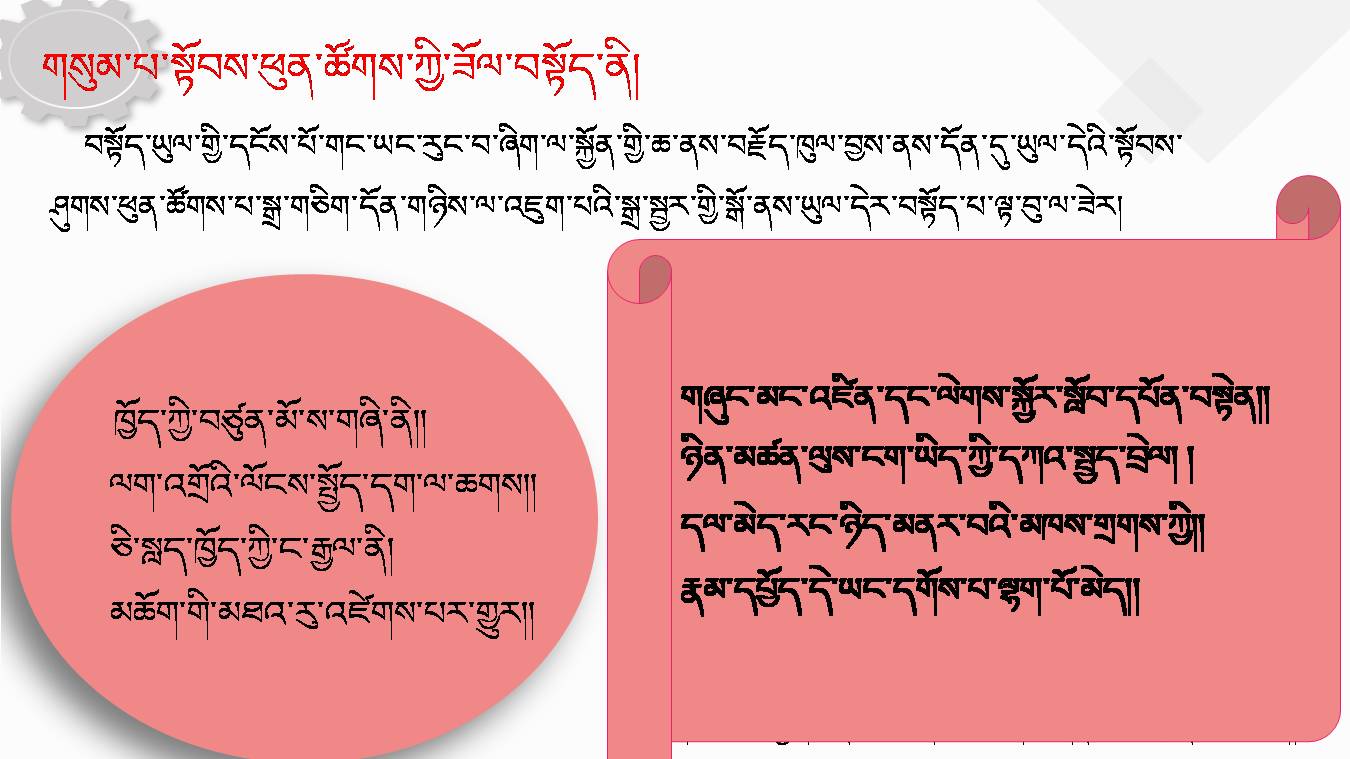 གསུམ་པ་སྟོབས་ཕུན་ཚོགས་ཀྱི་ཟོལ་བསྟོད་ནི།
བསྟོད་ཡུལ་གྱི་དངོས་པོ་གང་ཡང་རུང་བ་ཞིག་ལ་སྐྱོན་གྱི་ཆ་ནས་བརྗོད་ཁུལ་བྱས་ནས་དོན་དུ་ཡུལ་དེའི་སྟོབས་
ཤུགས་ཕུན་ཚོགས་པ་སྒྲ་གཅིག་དོན་གཉིས་ལ་འཇུག་པའི་སྒྲ་སྦྱར་གྱི་སྒོ་ནས་ཡུལ་དེར་བསྟོད་པ་ལྟ་བུ་ལ་ཟེར།
ཁྱོད་ཀྱི་བཙུན་མོ་ས་གཞི་ནི།།
ལག་འགྲོའི་ལོངས་སྤྱོད་དག་ལ་ཆགས།།
ཅི་སླད་ཁྱོད་ཀྱི་ང་རྒྱལ་ནི།
མཆོག་གི་མཐའ་རུ་འཛེགས་པར་གྱུར།།
གཞུང་མང་འཛིན་དང་ལེགས་སྐྱོར་སློབ་དཔོན་བསྟེན།།
ཉིན་མཚན་ལུས་ངག་ཡིད་ཀྱི་དཀའ་སྤྱད་བྲེལ། །
དལ་མེད་རང་ཉིད་མནར་བའི་མཁས་གྲགས་ཀྱི།།
རྣམ་དཔྱོད་དེ་ཡང་དགོས་པ་ལྷག་པོ་མེད།།